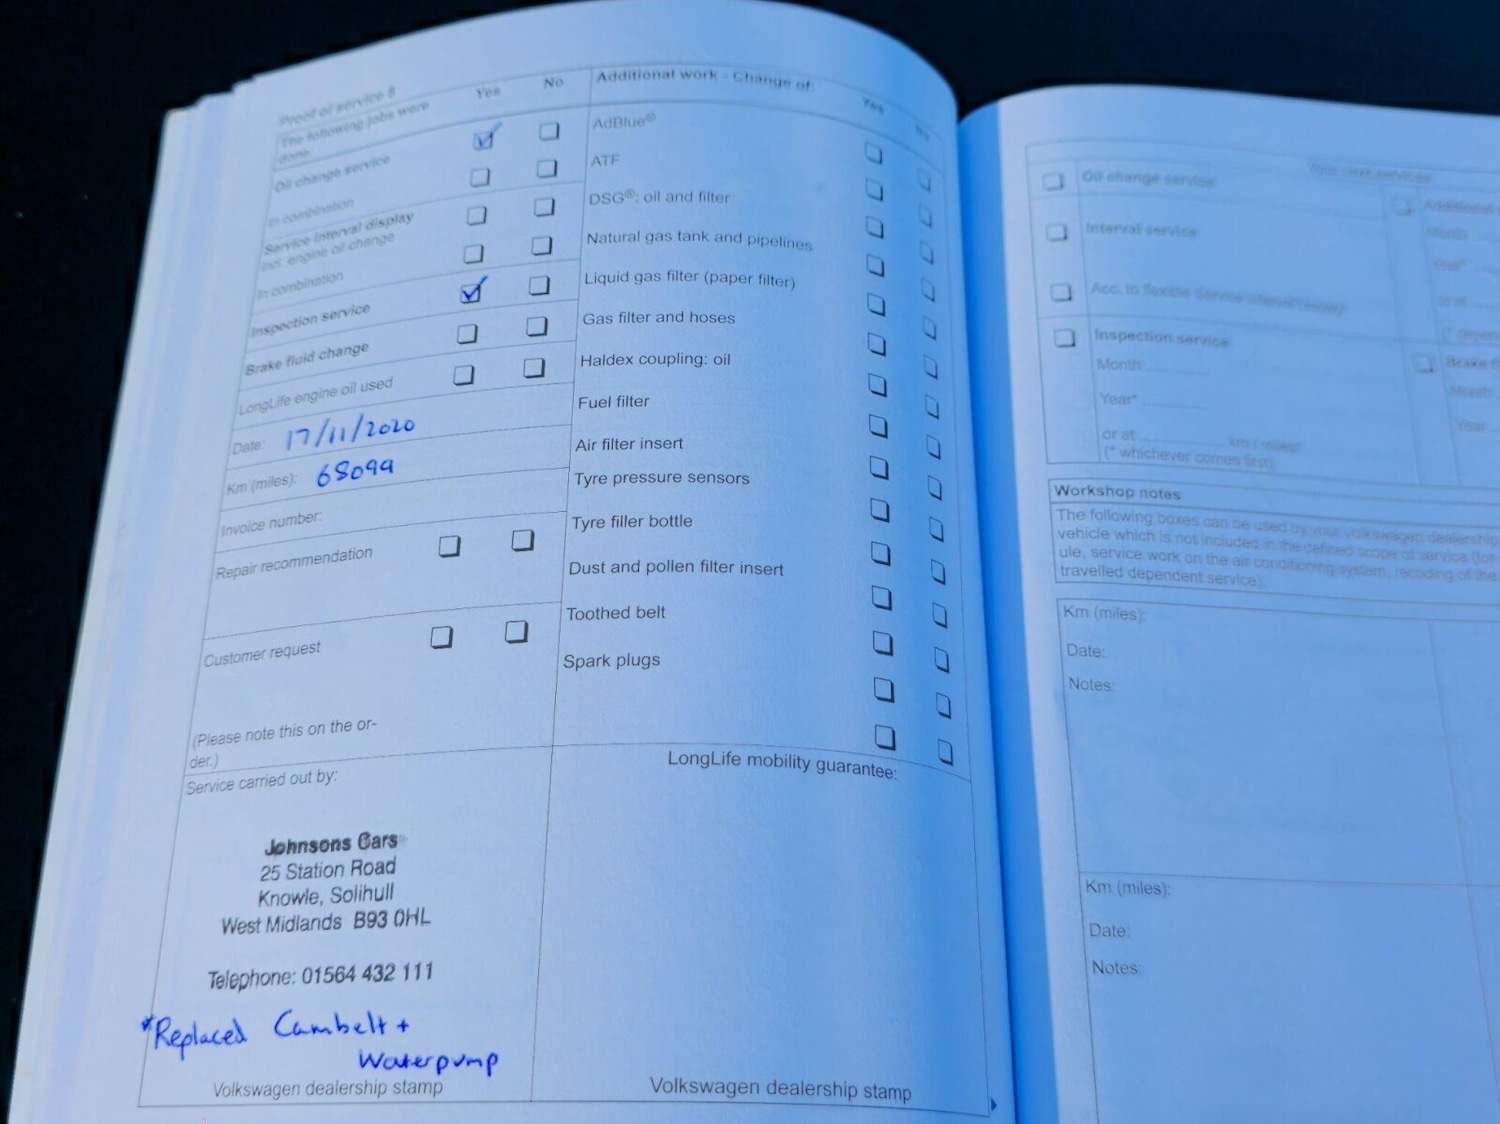 Proof of service 8
The following jobs were
done:
Yes
No
Oil change service
In combination
Service interval display
incl. engine oil change
In combination
Inspection service
Brake fluid change
LongLife engine oil used
Date: 17/11/2020
Km (miles): 68099
Invoice number:
Repair recommendation
Customer request
(Please note this on the or-
der.)
Service carried out by:
Johnsons Cars
25 Station Road
Knowle, Solihull
West Midlands B93 0HL
Telephone: 01564 432 111
*Replaced Cambelt +
Waterpump
Volkswagen dealership stamp
Additional work - Change of:
Yes
No
AdBlue®
ATF
DSG®: oil and filter
Natural gas tank and pipelines
Liquid gas filter (paper filter)
Gas filter and hoses
Haldex coupling: oil
Fuel filter
Air filter insert
Tyre pressure sensors
Tyre filler bottle
Dust and pollen filter insert
Toothed belt
Spark plugs
LongLife mobility guarantee:
Volkswagen dealership stamp
Your next services:
Oil change service
Interval service
Acc. to flexible service interval display
Inspection service
Month ..........
Year* ..........
or at .......... km / miles*
(* whichever comes first)
Additional
Month
Year*
or at
Month
Year
Workshop notes
The following boxes can be used by your Volkswagen dealership
vehicle which is not included in the defined scope of service (for
ule, service work on the air conditioning system, recoding of the
travelled dependent service).
Km (miles):
Date:
Notes:
Km (miles):
Date:
Notes: